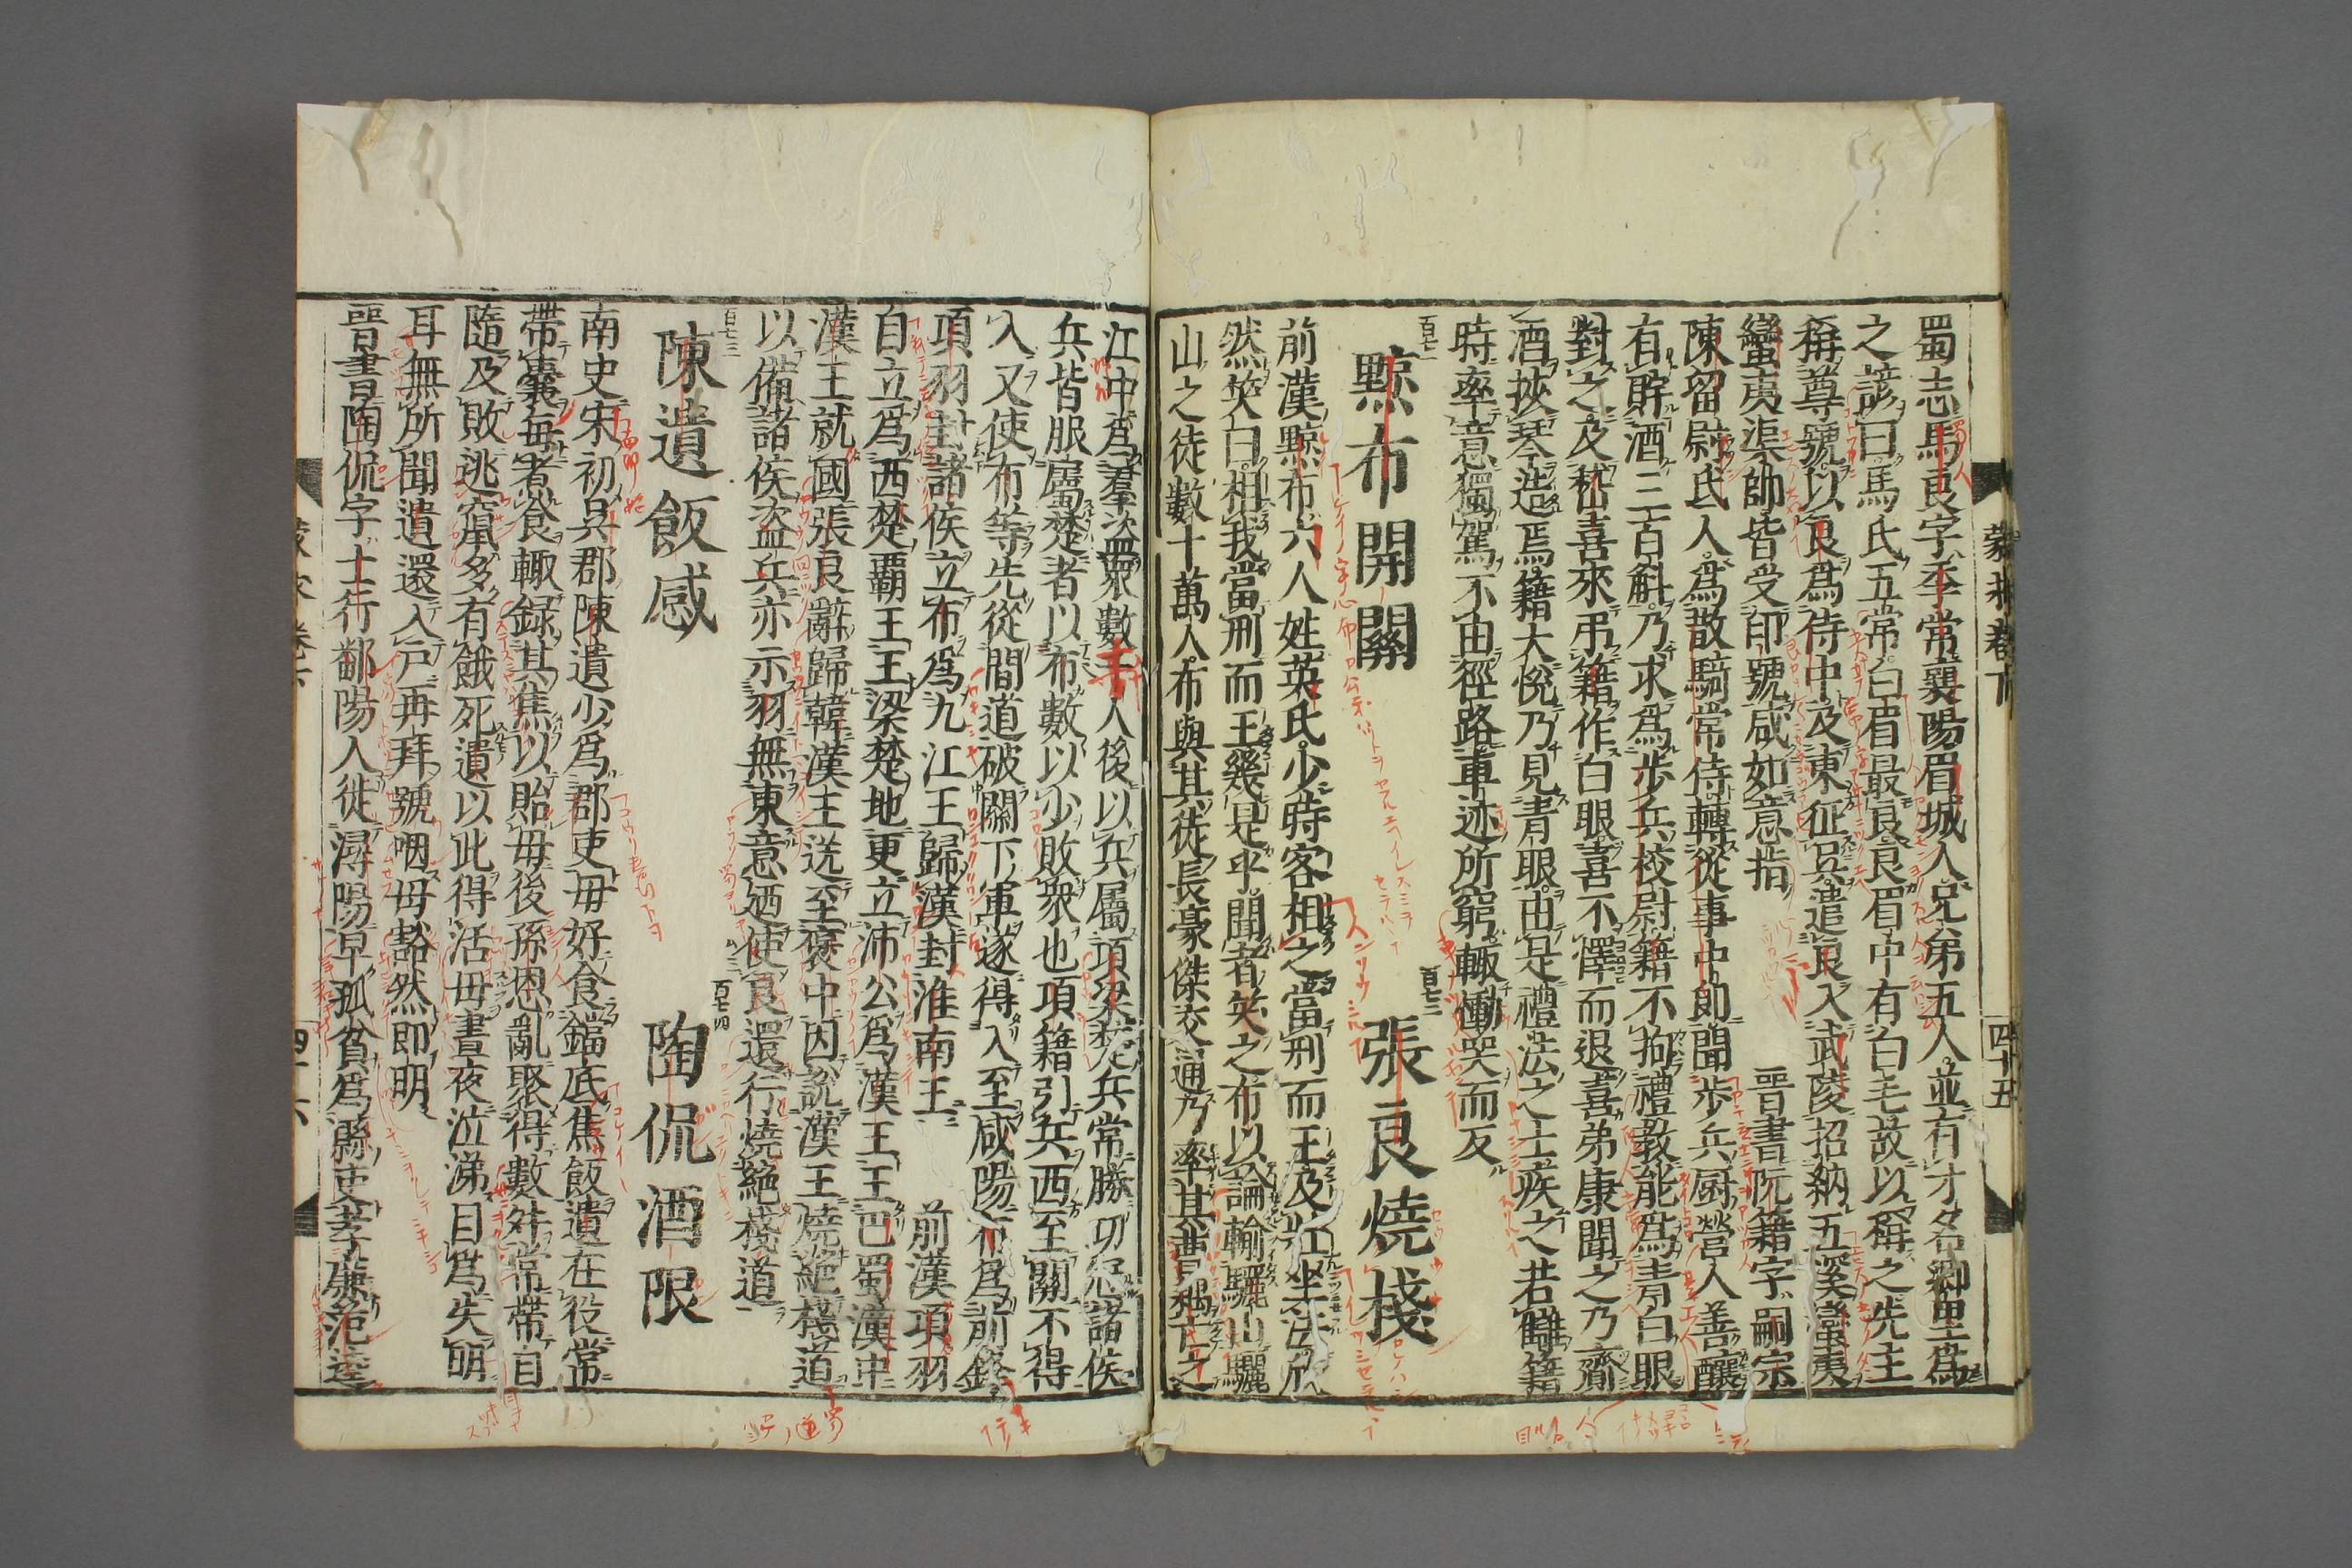 蒙求卷下
四十五
蜀志馬良字季常襄陽眉城人兄弟五人並有才名鄉里爲
之諺曰馬氏五常白眉最良良眉中有白毛故以稱之先主
稱尊號以良爲侍中及東征吳遣良入武陵招納五溪蠻夷
蠻夷渠帥皆受印號咸如意指 晉書阮籍字嗣宗
陳留尉氏人爲散騎常侍轉從事中郎聞步兵厨營人善釀
有貯酒三百斛乃求爲步兵校尉籍不拘禮教能爲青白眼
對之及嵆喜來弔籍作白眼喜不懌而退喜弟康聞之乃齎
酒挾琴造焉籍大悅乃見青眼由是禮法之士疾之若讎籍
時率意獨駕不由徑路車迹所窮輙慟哭而反
百七一
黥布開關
百七二
張良燒棧
前漢黥布六人姓英氏少時客相之當刑而王及壯坐法欣
然笑曰相我當刑而王幾是乎聞者笑之布以論輸驪山驪
山之徒數十萬人布與其徒長豪傑交通乃率其曹耦亡之
江中爲羣盗衆數千人後以兵屬項梁楚兵常勝功冠諸侯
兵皆服屬楚者以布數以少敗衆也項籍引兵西至關不得
入又使布等先從間道破關下軍遂得入至咸陽布爲前鋒
項羽封諸侯立布爲九江王歸漢封淮南王 前漢項羽
自立爲西楚霸王王梁楚地更立沛公爲漢王王巴蜀漢中
漢王就國張良辭歸韓漢王送至褒中因說漢王燒絕棧道
以備諸侯盗兵亦示羽無東意廼使良還行燒絕棧道
百七三
陳遺飯感
百七四
陶侃酒限
南史宋初吳郡陳遺少爲郡吏母好食鐺底焦飯遺在役常
帶囊每煑食輙録其焦以貽母後孫恩亂聚得數舛常帶自
隨及敗逃竄多有餓死遺以此得活母晝夜泣涕目爲失明
耳無所聞遺還入戶再拜號咽母豁然即明
晉書陶侃字士行鄱陽人徙潯陽早孤貧爲縣吏孝廉范逵